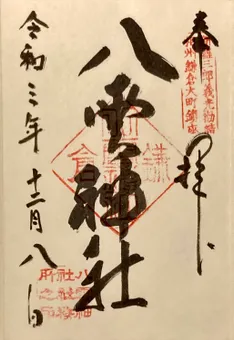 奉拝
新羅三郎義光勧請
相州鎌倉大町鎮座
八雲神社
鎌倉
八雲神社之印
令和三年十二月八日